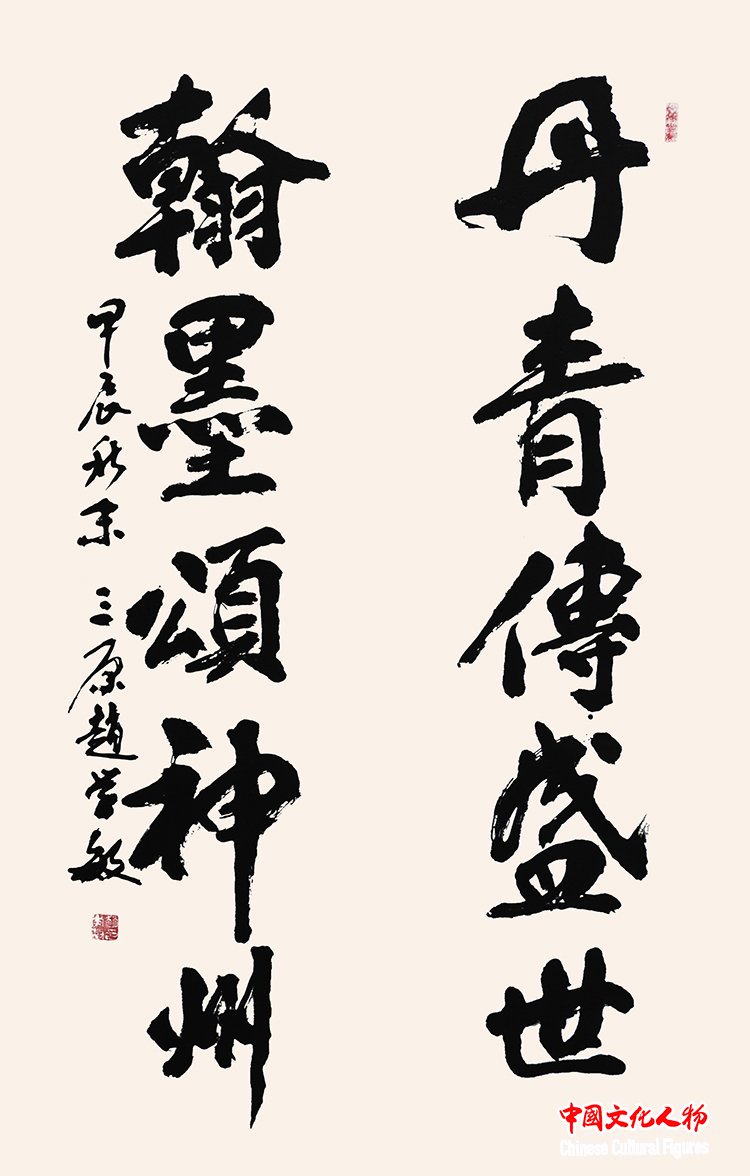 丹青傳盛世
翰墨頌神州
甲辰秋末 三原趙学敏
中國文化人物
Chinese Cultural Figures